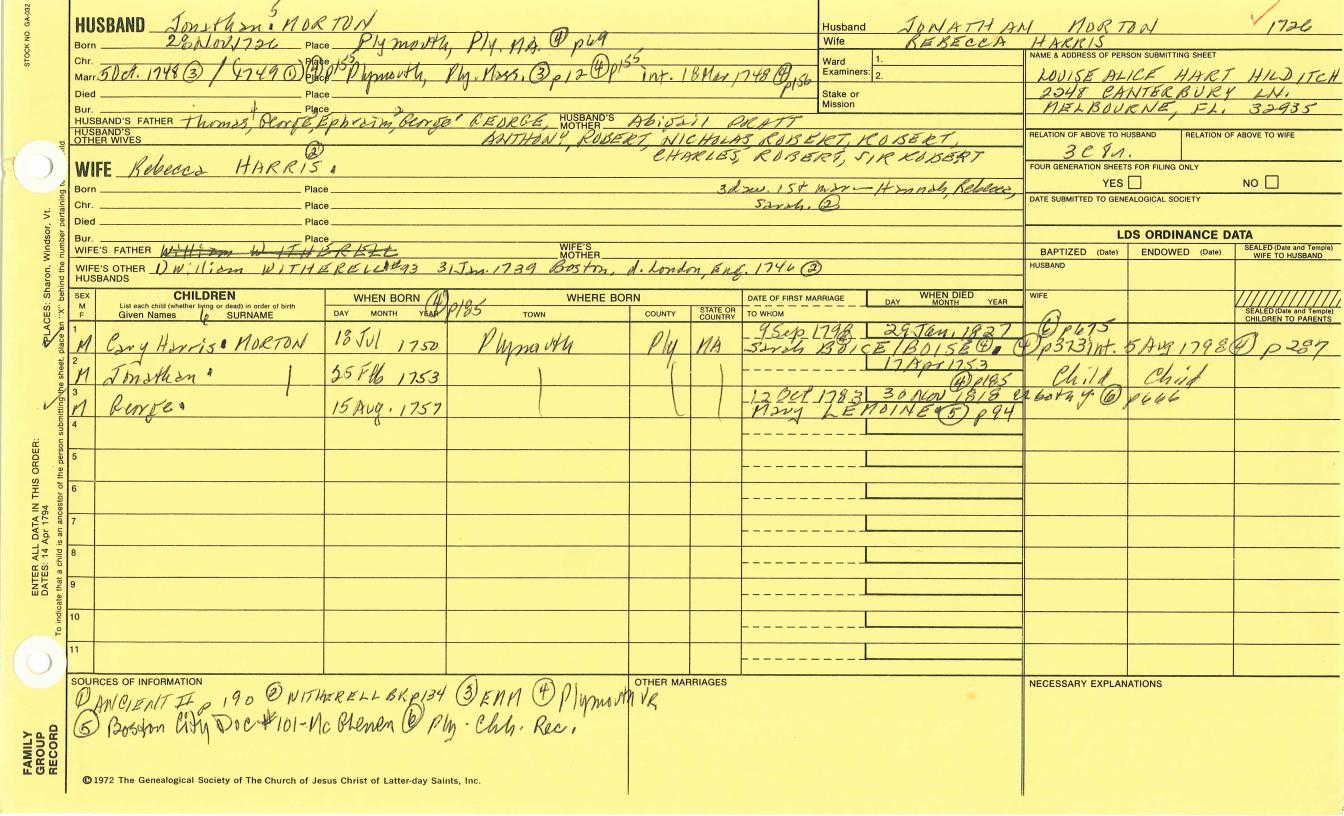 STOCK NO. GA-032
HUSBAND Jonathan 5 MORTON
Born 28 Nov 1726 Place Plymouth, Ply. MA. ④ p69
Chr. Place
Marr. 5 Oct. 1748 ③ / (1749 ① ④ p155 Place Plymouth, Ply. Mass. ③ p12 ④ p155 int. 18 Mar 1748 ④ p156
Died Place
Bur. Place
HUSBAND'S FATHER Thomas, George, Ephraim, George GEORGE, HUSBAND'S MOTHER Abigail PRATT
HUSBAND'S OTHER WIVES ANTHONY, ROBERT, NICHOLAS, ROBERT, ROBERT,
CHARLES, ROBERT, SIR ROBERT
WIFE Rebecca HARRIS ②
Born Place 3 daw. 1st mar — Hannah, Rebecca,
Chr. Place Sarah. ②
Died Place
Bur. Place
WIFE'S FATHER William WITHERELL WIFE'S MOTHER
WIFE'S OTHER HUSBANDS 1) William WITHERELL #93 31 Jan. 1739 Boston, d. London, Eng. 1746 ②
Husband JONATHAN MORTON 1726
Wife REBECCA HARRIS
Ward Examiners: 1.
2.
Stake or Mission
NAME & ADDRESS OF PERSON SUBMITTING SHEET
LOUISE ALICE HART HILDITCH
2248 CANTERBURY LN.
MELBOURNE, FL. 32935
RELATION OF ABOVE TO HUSBAND RELATION OF ABOVE TO WIFE
3C8r.
FOUR GENERATION SHEETS FOR FILING ONLY
YES NO
DATE SUBMITTED TO GENEALOGICAL SOCIETY
LDS ORDINANCE DATA
BAPTIZED (Date) ENDOWED (Date) SEALED (Date and Temple) WIFE TO HUSBAND
HUSBAND
WIFE
SEALED (Date and Temple) CHILDREN TO PARENTS
SEX M F
CHILDREN
List each child (whether living or dead) in order of birth
Given Names 6 SURNAME
WHEN BORN ④ p185
DAY MONTH YEAR
WHERE BORN
TOWN COUNTY STATE OR COUNTRY
DATE OF FIRST MARRIAGE
TO WHOM
WHEN DIED
DAY MONTH YEAR
1 M Cary Harris MORTON 18 Jul 1750 Plymouth Ply MA 9 Sep 1798 29 Jan. 1827 ⑥ p675
Sarah BOICE/BOISE ④ ④ p373 int. 5 Aug 1798 ④ p287
2 M Jonathan 25 Feb 1753 17 Apr 1753 ④ p185 Child Child
3 M George 15 Aug. 1757 12 Oct 1783 30 Nov 1818 ⑥ p666
Mary LEMOINE ⑤ p94
4
5
6
7
8
9
10
11
SOURCES OF INFORMATION
① ANCIENT II p 190 ② WITHERELL BK p134 ③ EMM ④ Plymouth VR
⑤ Boston City Doc #101 - ⑥ Ply. Chh. Rec.
OTHER MARRIAGES
NECESSARY EXPLANATIONS
©1972 The Genealogical Society of The Church of Jesus Christ of Latter-day Saints, Inc.
FAMILY GROUP RECORD
ENTER ALL DATA IN THIS ORDER:
DATES: 14 Apr 1794
PLACES: Sharon, Windsor, Vt.
To indicate that a child is an ancestor of the person submitting the sheet, place an "X" behind the number pertaining to